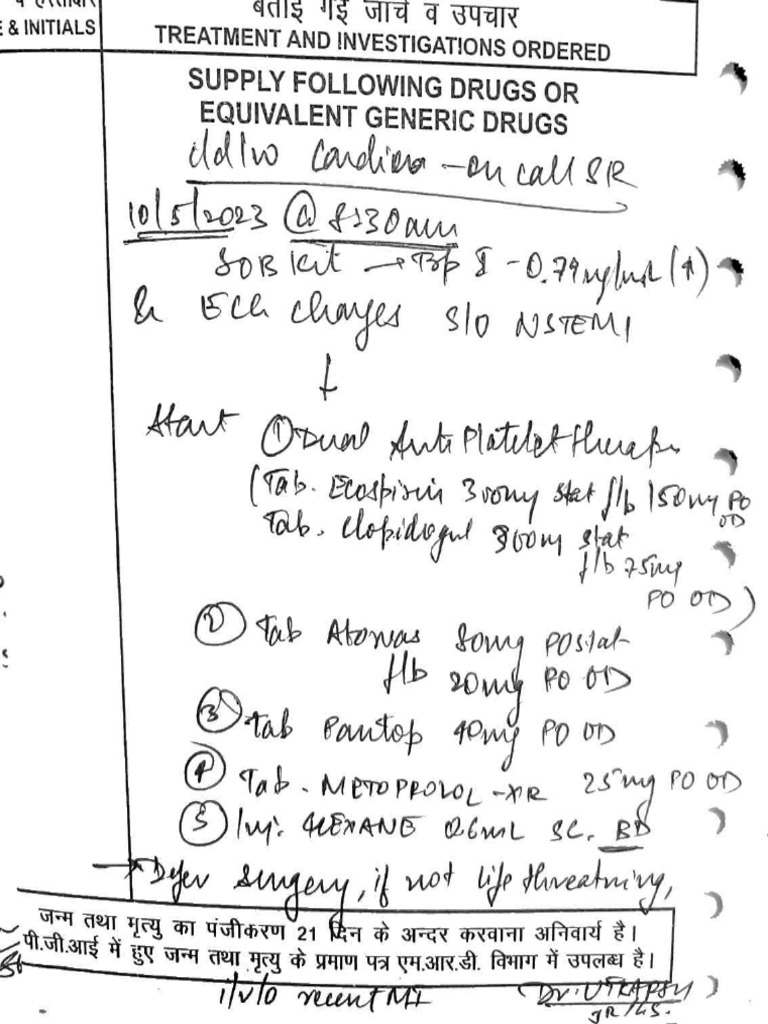 बताई गई जाँचें व उपचार
& INITIALS
TREATMENT AND INVESTIGATIONS ORDERED
SUPPLY FOLLOWING DRUGS OR
EQUIVALENT GENERIC DRUGS
d/d/w Cardio - on call SR
10/5/2023 @ 8:30am
SOB Kit → Trop I - 0.79 ng/mL (↑)
& ECG changes S/O NSTEMI
↓
Start ① Dual AntiPlatelet therapy
(Tab. Ecospirin 300mg stat f/b 150mg PO OD
Tab. Clopidogrel 300mg stat
f/b 75mg
PO OD)
② Tab Atorvas 80mg PO stat
f/b 20mg PO OD
③ Tab Pantop 40mg PO OD
④ Tab. METOPROLOL-XR 25mg PO OD
⑤ Inj. CLEXANE 0.6mL SC. BD
→ Defer surgery, if not life threatning,
जन्म तथा मृत्यु का पंजीकरण 21 दिन के अन्दर करवाना अनिवार्य है।
पी.जी.आई में हुए जन्म तथा मृत्यु के प्रमाण पत्र एम.आर.डी. विभाग में उपलब्ध है।
i/v/o recent MI
JR/GS.